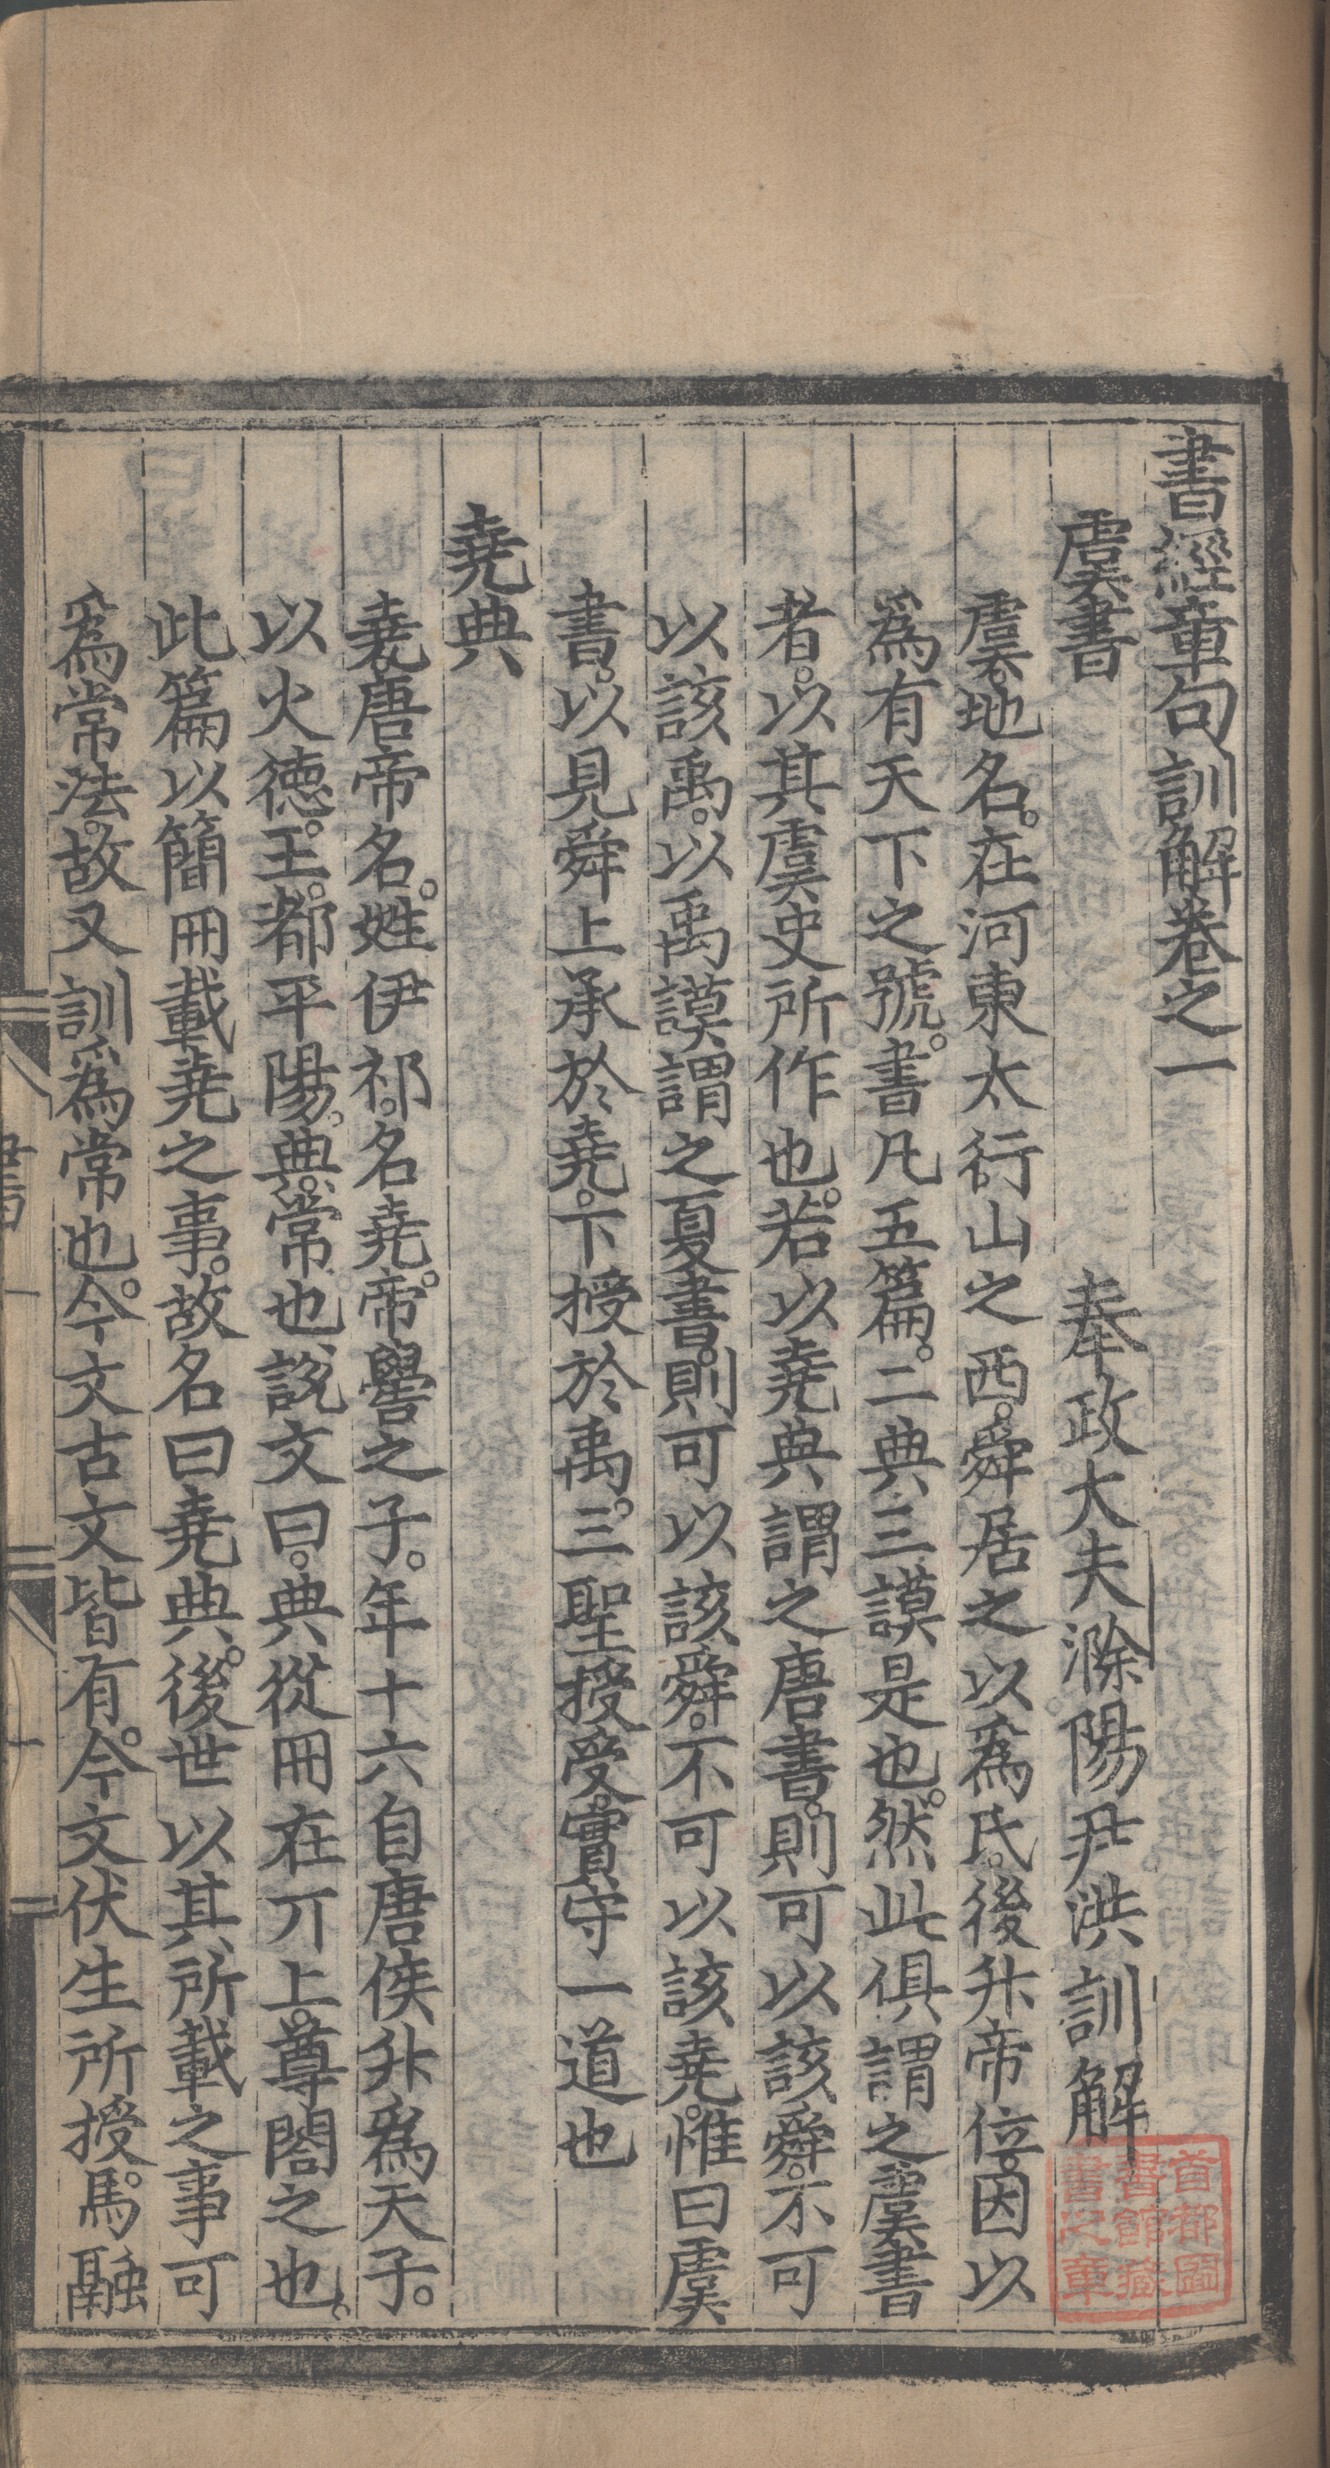 書經章句訓解卷之一
奉政大夫滁陽尹洪訓解
虞書
虞。地名。在河東太行山之西。舜居之以爲氏。後升帝位。因以
爲有天下之號。書凡五篇。二典三謨是也。然此俱謂之虞書
者。以其虞史所作也。若以堯典謂之唐書。則可以該舜。不可
以該禹。以禹謨謂之夏書。則可以該舜。不可以該堯。惟曰虞
書。以見舜上承於堯。下授於禹。三聖授受。實守一道也
堯典
堯唐帝名。姓伊祁。名堯。帝嚳之子。年十六自唐侯升爲天子。
以火德王。都平陽。典。常也。說文曰。典從冊在丌上。尊閣之也。
此篇以簡冊載堯之事。故名曰堯典。後世以其所載之事可
爲常法。故又訓爲常也。今文古文皆有。今文伏生所授。馬融
首都圖書館藏書之章